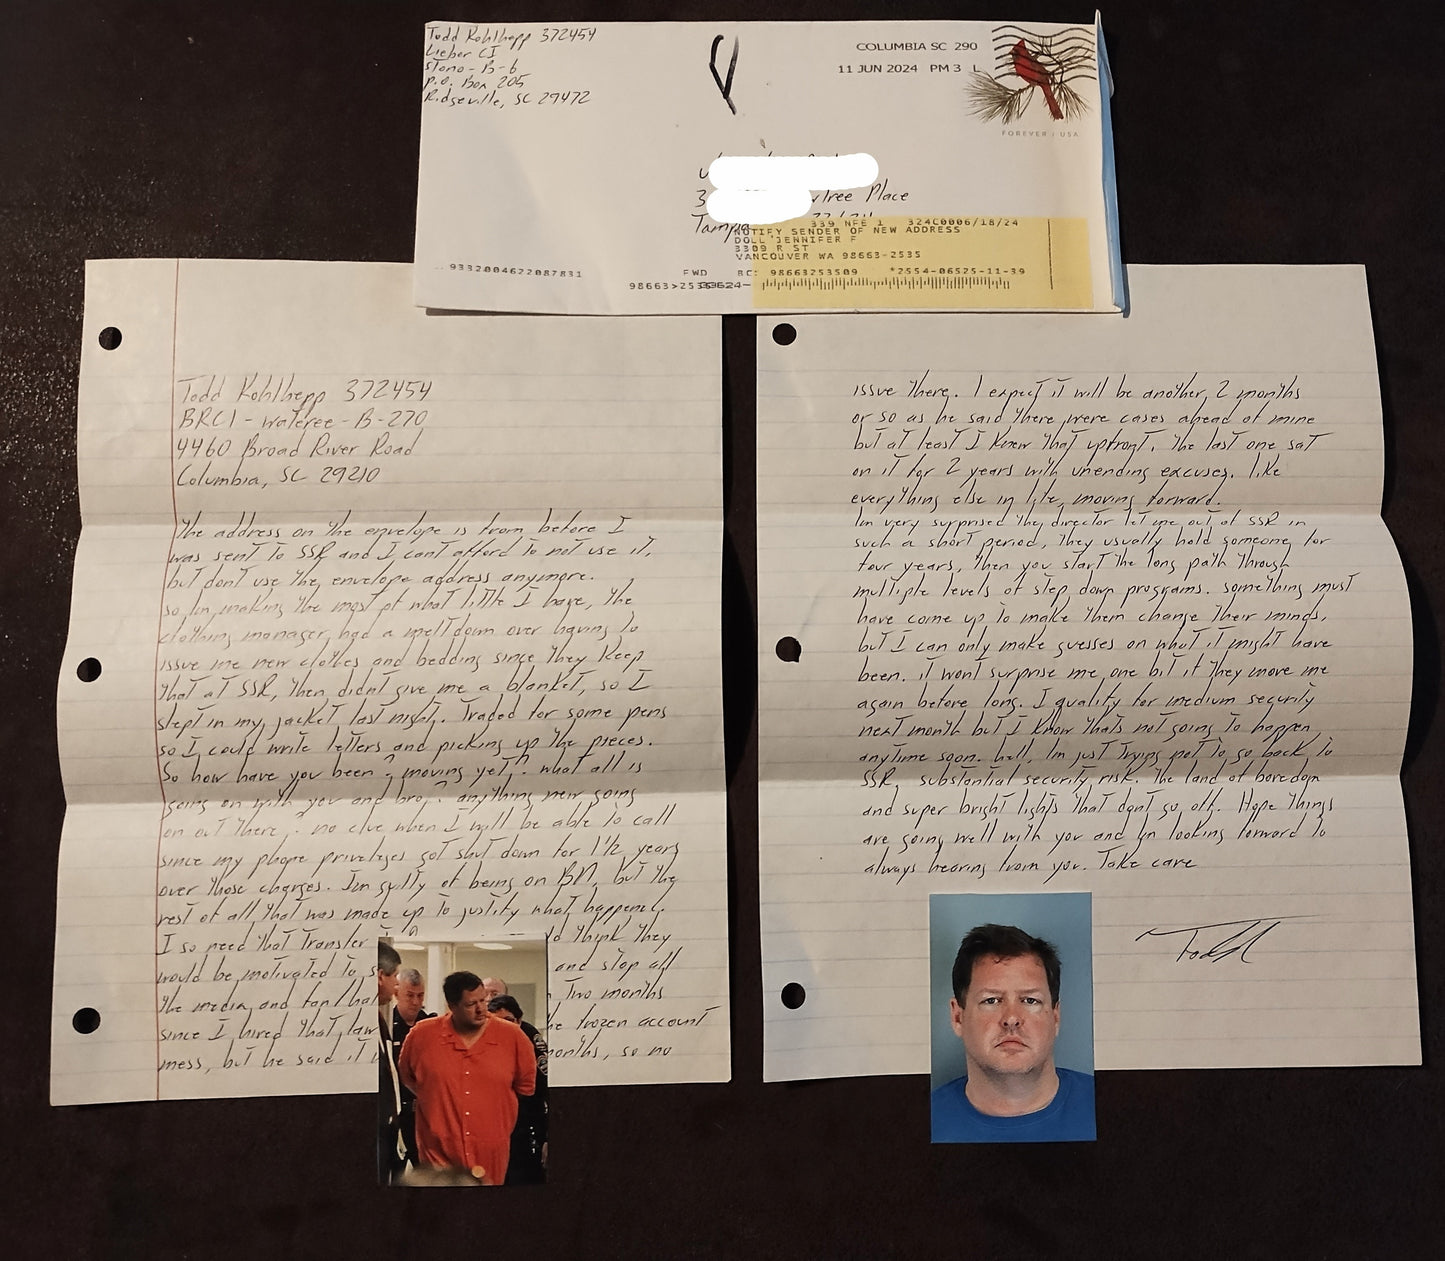 Todd Kohlhepp 372454
Lieber CI
Stono-B-6
P.O. Box 205
Ridgeville, SC 29472
COLUMBIA SC 290
11 JUN 2024 PM 3 L
FOREVER / USA
3
tree Place
Tampa
339 NFE 1 324C0006/18/24
NOTIFY SENDER OF NEW ADDRESS
DOLL JENNIFER F
3309 R ST
VANCOUVER WA 98663-2535
9332004622087831
FWD BC: 98663253509 *2554-06525-11-39
98663>2535
Todd Kohlhepp 372454
BRCI - Wateree - B-270
4460 Broad River Road
Columbia, SC 29210
The address on the envelope is from before I
was sent to SSR and I cant afford to not use it,
but dont use the envelope address anymore.
so Im making the most of what little I have, the
clothing manager had a meltdown over having to
issue me new clothes and bedding since they keep
that at SSR, then didnt give me a blanket, so I
slept in my jacket last night. Traded for some pens
so I could write letters and picking up the pieces.
So how have you been? moving yet? what all is
going on with you and bro? anything new going
on out there? no clue when I will be able to call
since my phone privileges got shut down for 1½ years
over those charges. Im guilty of being on BM, but the
rest of all that was made up to justify what happened.
I so need that transfer think they
would be motivated to s and stop all
the media and fan/ha Two months
since I hired that law he frozen account
mess, but he said it months, so no
issue there. I expect it will be another 2 months
or so as he said there were cases ahead of mine
but at least I knew that upfront. The last one sat
on it for 2 years with unending excuses. like
everything else in life, moving forward.
Im very surprised the director let me out of SSR in
such a short period, they usually hold someone for
four years, then you start the long path through
multiple levels of step down programs. something must
have come up to make them change their minds,
but I can only make guesses on what it might have
been. it wont surprise me one bit if they move me
again before long. I qualify for medium security
next month but I know thats not going to happen
anytime soon. hell, Im just trying not to go back to
SSR, substantial security risk. The land of boredom
and super bright lights that dont go off. Hope things
are going well with you and Im looking forward to
always hearing from you. Take care
Todd